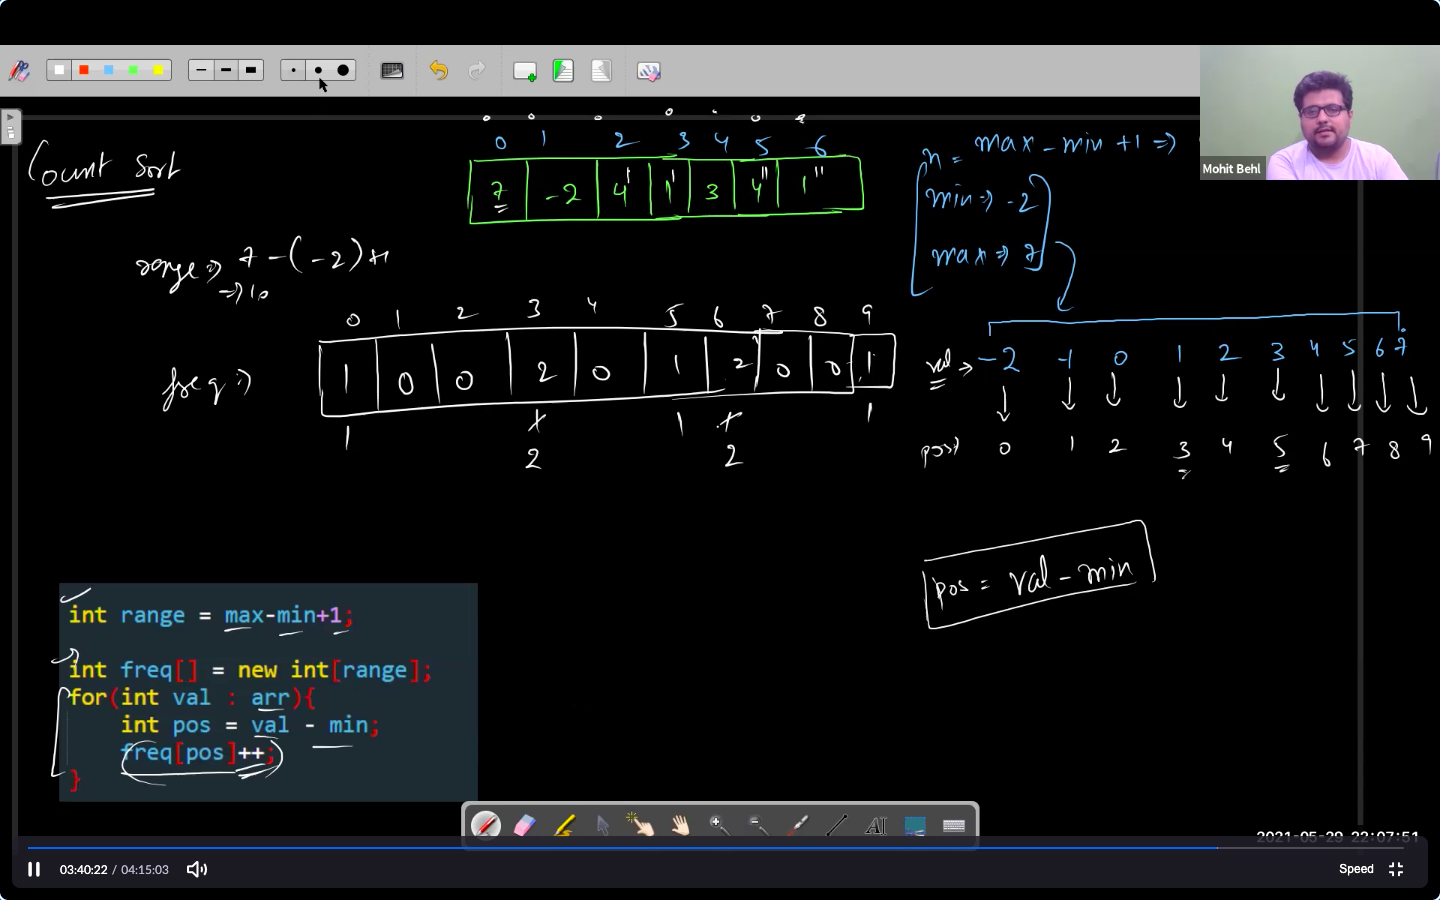 Mohit Behl
Count Sort
0 1 2 3 4 5 6
7 -2 4' 1' 3 4" 1"
n = max - min + 1 =>
min => -2
max => 7
range => 7 - (-2) + 1
=> 10
0 1 2 3 4 5 6 7 8 9
freq => 1 0 0 2 0 1 2 0 0 1
1 1 1 1 1
2 2
val => -2 -1 0 1 2 3 4 5 6 7
pos => 0 1 2 3 4 5 6 7 8 9
pos = val - min
int range = max-min+1;
int freq[] = new int[range];
for(int val : arr){
int pos = val - min;
freq[pos]++;
}
AI
2021-05-29 22:07:51
03:40:22 / 04:15:03
Speed